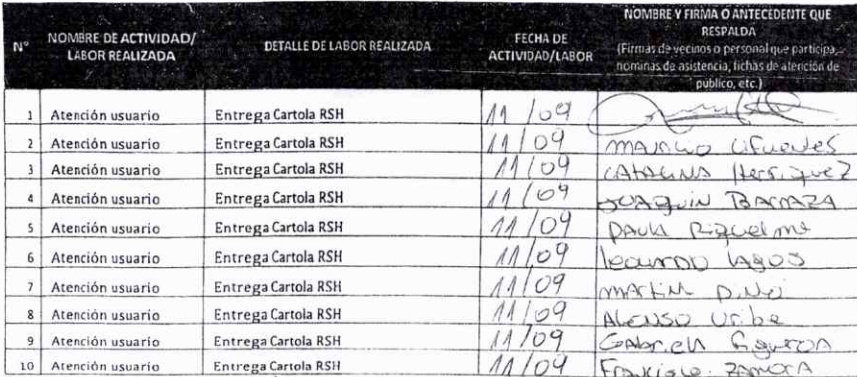 N° NOMBRE DE ACTIVIDAD/ LABOR REALIZADA DETALLE DE LABOR REALIZADA FECHA DE ACTIVIDAD/LABOR NOMBRE Y FIRMA O ANTECEDENTE QUE RESPALDA
(Firmas de vecinos o personal que participa, nominas de asistencia, fichas de atención de publico, etc.)
1 Atención usuario Entrega Cartola RSH 11/09
2 Atención usuario Entrega Cartola RSH 11/09 Mauricio Cifuentes
3 Atención usuario Entrega Cartola RSH 11/09 CATALINA Henriquez
4 Atención usuario Entrega Cartola RSH 11/09 JOAQUIN BARRAZA
5 Atención usuario Entrega Cartola RSH 11/09 PAULA Riquelme
6 Atención usuario Entrega Cartola RSH 11/09 leonardo lagos
7 Atención usuario Entrega Cartola RSH 11/09 MARTIN
8 Atención usuario Entrega Cartola RSH 11/09 Alonso Uribe
9 Atención usuario Entrega Cartola RSH 11/09 Gabriela Figueroa
10 Atención usuario Entrega Cartola RSH 11/09 ZAMORA